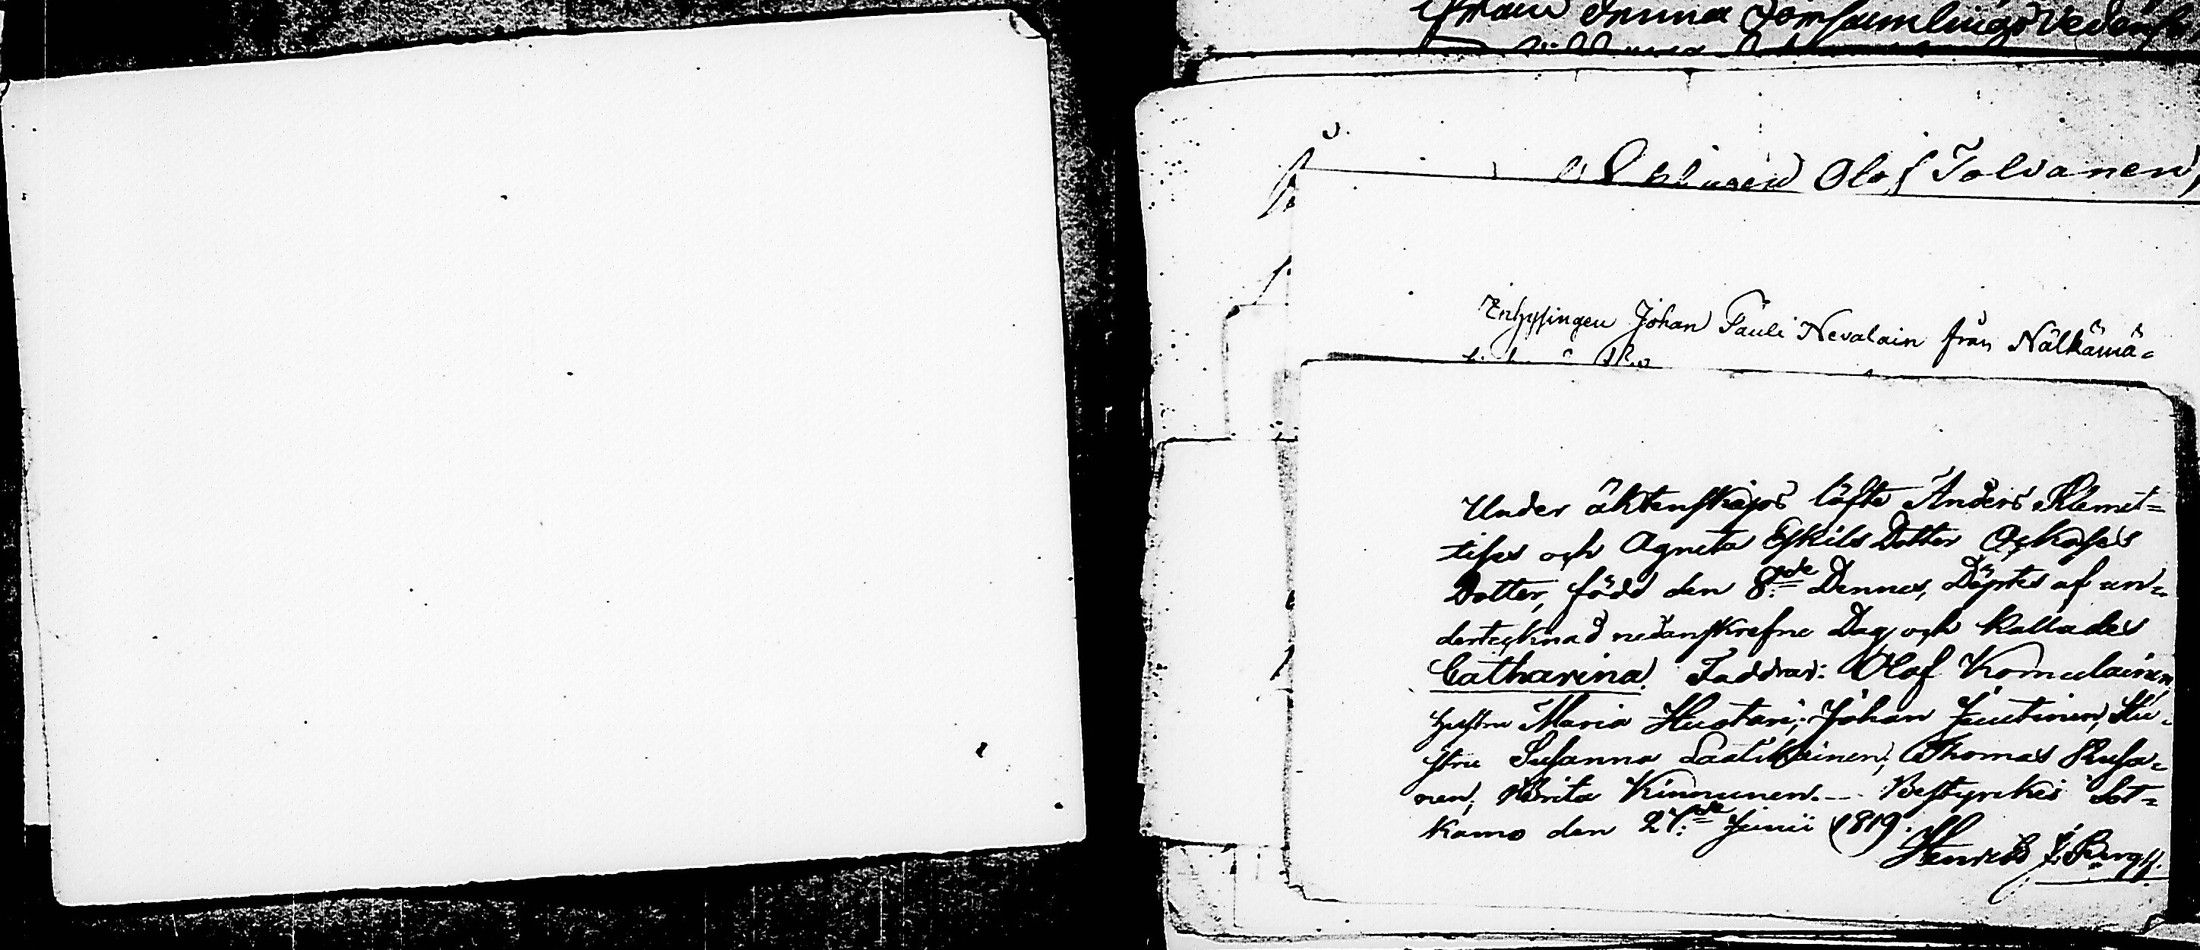 Olof Tolvanen,
Enhysingen Johan Påuli Nevalain från Nälkämä=
Under äktenskaps löfte Anders Klemet=
tises och Agneta Eskils Dotter
Dotter, född den 8:de Dennes, Döptes af un=
dertecknad nedanskrefne Dag och kallades
Catharina. Faddrar: Olof Komulainen
hustru Maria Huotari; Johan Juutinen, Hu=
stru Susanna Laatikainen; Thomas Rusa=
nen, Brita Kinnunen. — Bestyrkes Sot=
kamo den 27:de Junii 1819.
Henric J. Bergh.